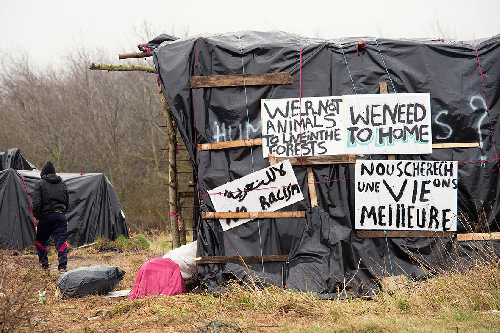 WE,R NOT
ANIMALS,
TO LIVE IN THE
FORESTS
WE NEED
TO HOME
RACISM
NOUS CHERECH
UNE VIE ONS
MEILLEURE